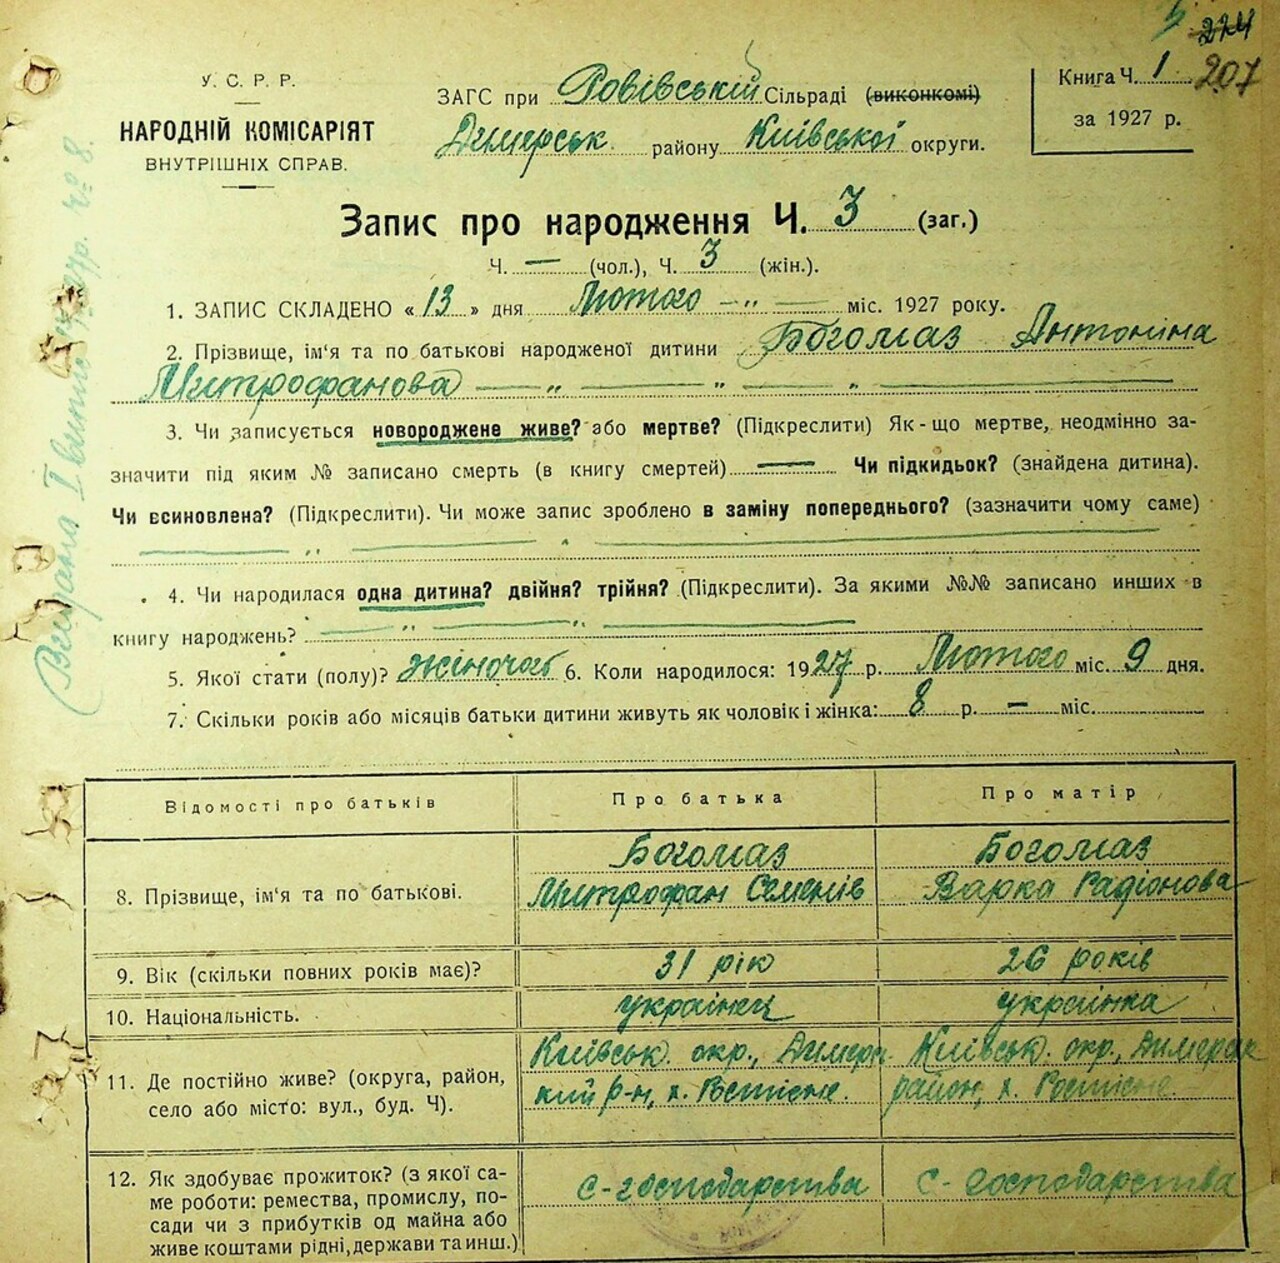 274
207
У. С. Р. Р.
НАРОДНІЙ КОМІСАРІЯТ
ВНУТРІШНІХ СПРАВ.
ЗАГС при Ровівській Сільраді (виконкомі)
Димерськ району Київської округи.
Книга Ч. 1
за 1927 р.
Запис про народження Ч. 3 (заг.)
Ч. — (чол.), Ч. 3 (жін.).
1. ЗАПИС СКЛАДЕНО «13» дня Лютого — „ — міс. 1927 року.
2. Прізвище, ім'я та по батькові народженої дитини Богомаз Антоніна
Митрофанова — „ — „ — „ —
3. Чи записується новороджене живе? або мертве? (Підкреслити) Як-що мертве, неодмінно за-
значити під яким № записано смерть (в книгу смертей) — Чи підкидьок? (знайдена дитина).
Чи всиновлена? (Підкреслити). Чи може запис зроблено в заміну попереднього? (зазначити чому саме)
4. Чи народилася одна дитина? двійня? трійня? (Підкреслити). За якими №№ записано инших в
книгу народжень? — „ — „ —
5. Якої стати (полу)? жіночої 6. Коли народилося: 1927 р. Лютого міс. 9 дня.
7. Скільки років або місяців батьки дитини живуть як чоловік і жінка: 8 р. — міс.
Відомості про батьків
Про батька
Про матір
8. Прізвище, ім'я та по батькові.
Богомаз
Митрофан Семенів
Богомаз
Варка Радіонова
9. Вік (скільки повних років має)?
31 рік
26 років
10. Національність.
українец
українка
11. Де постійно живе? (округа, район,
село або місто: вул., буд. Ч).
Київськ. окр., Димерс
кий р-н, х.
Київськ. окр., Димерськ
район, х.
12. Як здобуває прожиток? (з якої са-
ме роботи: ремества, промислу, по-
сади чи з прибутків од майна або
живе коштами рідні, держави та инш.)
с-господарства
с-господарства